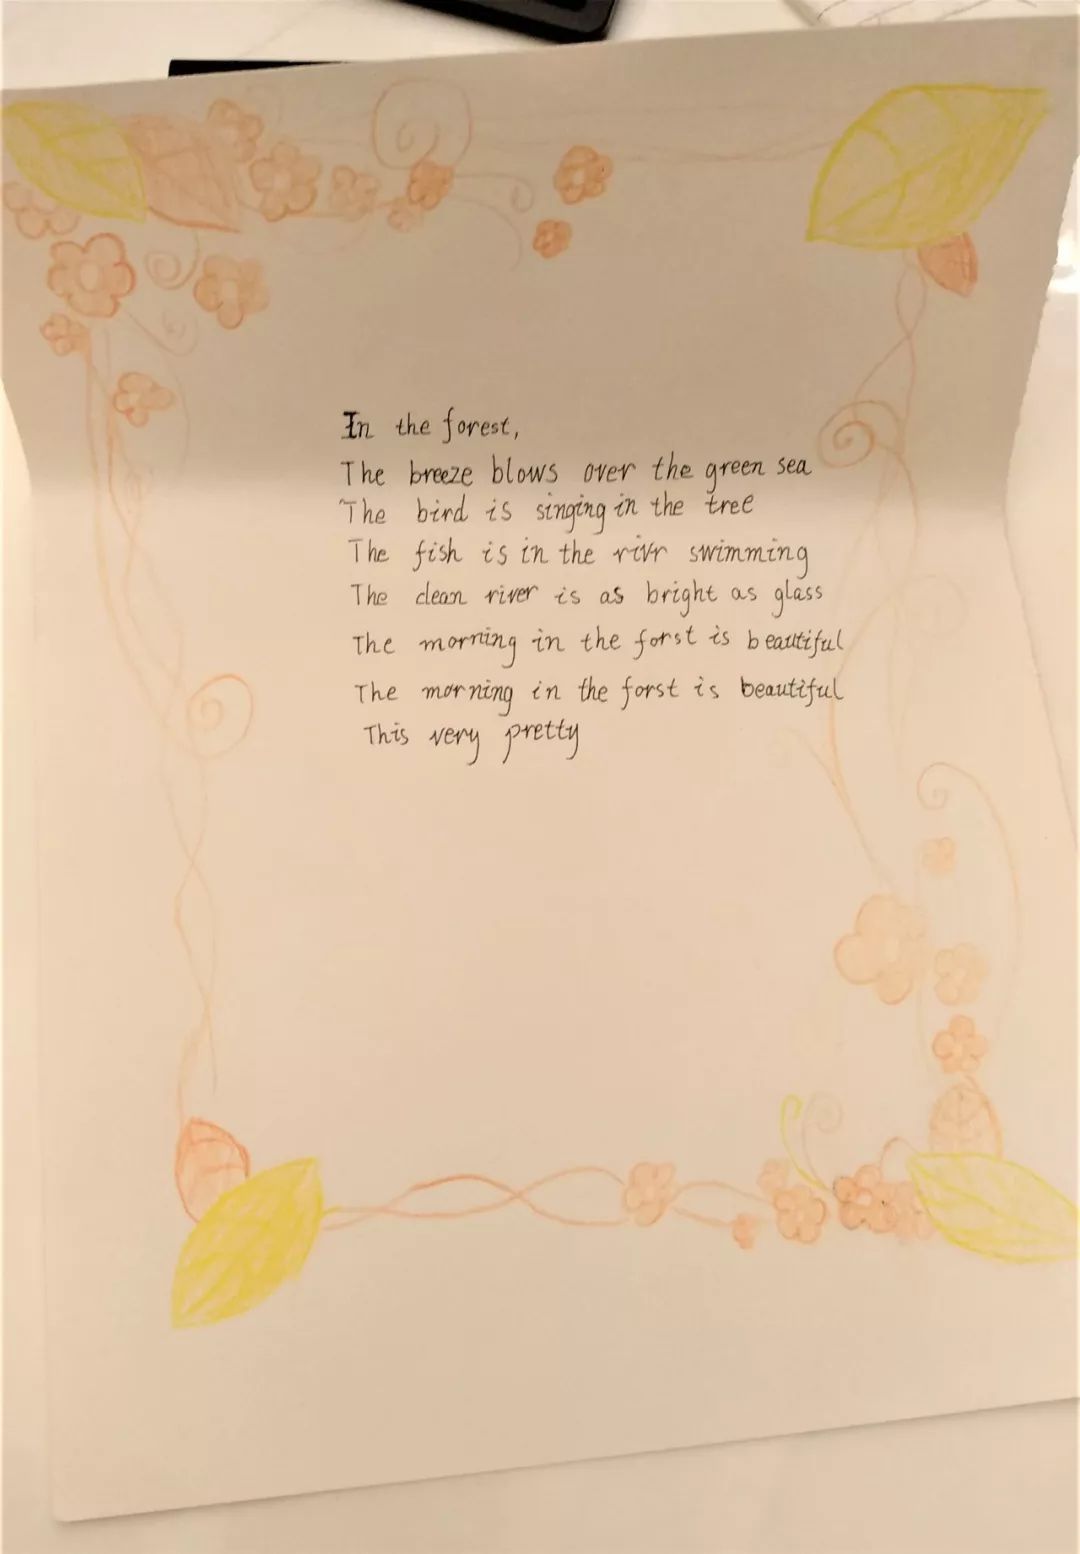 In the forest,
The breeze blows over the green sea
The bird is singing in the tree
The fish is in the rivr swimming
The clean river is as bright as glass
The morning in the forst is beautiful
The morning in the forst is beautiful
This very pretty